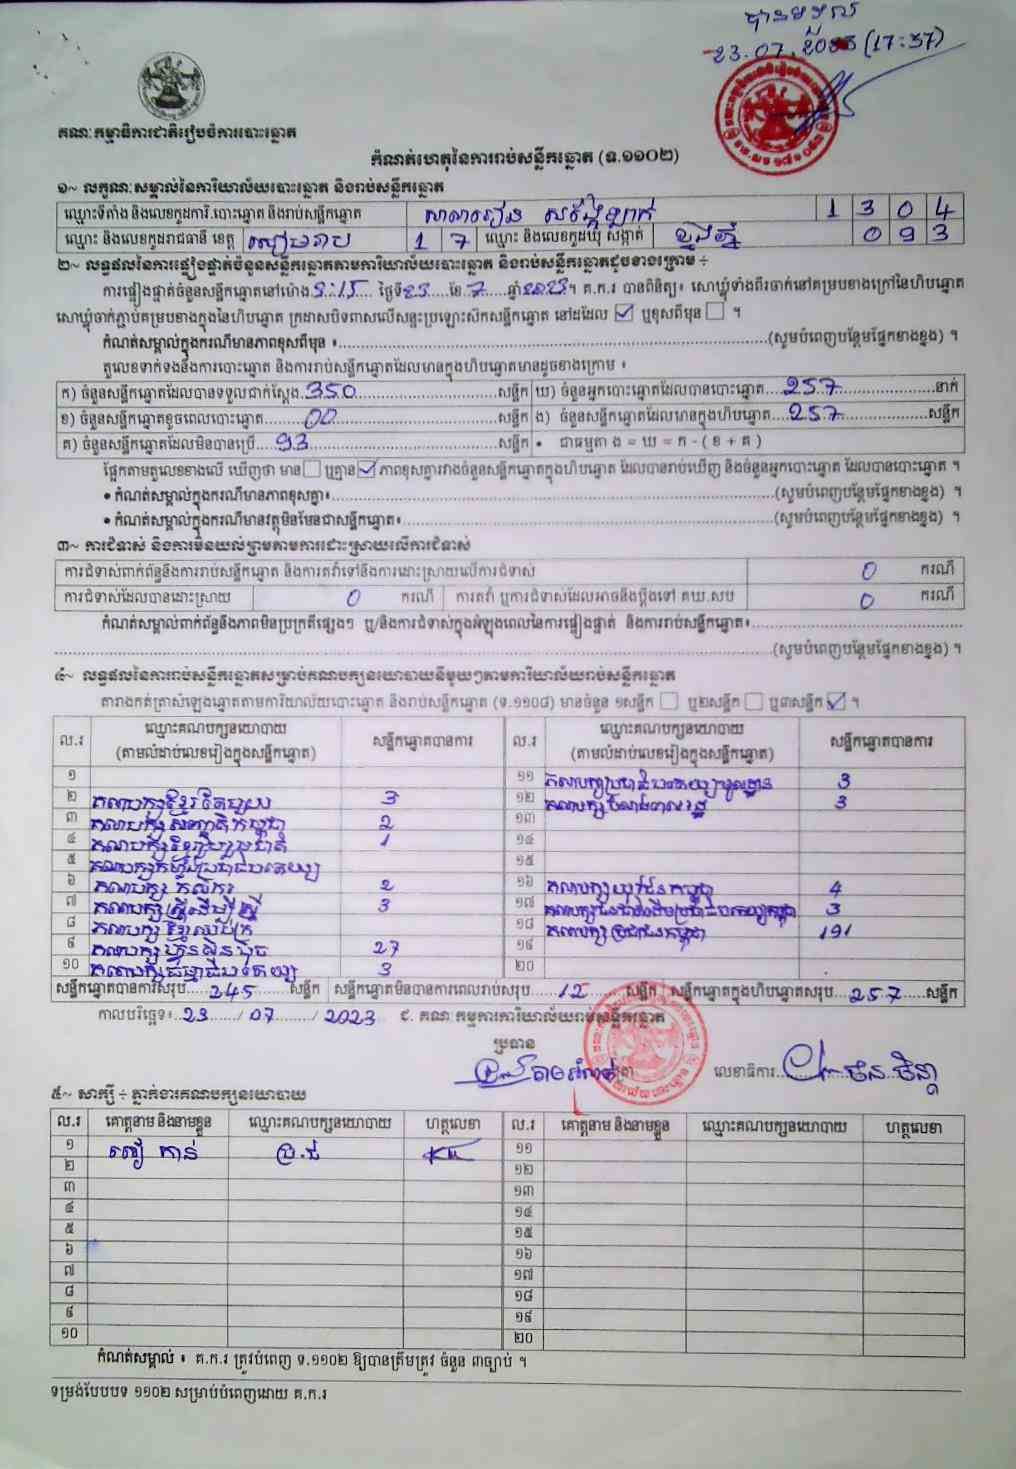 បានទទួល
23.07.2023 (17:37)
គណៈកម្មាធិការជាតិរៀបចំការបោះឆ្នោត
កំណត់ហេតុនៃការរាប់សន្លឹកឆ្នោត (ទ.១១០២)
១~ លក្ខណៈសម្គាល់នៃការិយាល័យបោះឆ្នោត និងរាប់សន្លឹកឆ្នោត
ឈ្មោះទីតាំង និងលេខកូដការិ.បោះឆ្នោត និងរាប់សន្លឹកឆ្នោត សាលារៀន 1 3 0 4
ឈ្មោះ និងលេខកូដរាជធានី ខេត្ត សៀមរាប 1 7 ឈ្មោះ និងលេខកូដឃុំ សង្កាត់ 0 9 3
២~ លទ្ធផលនៃការផ្ទៀងផ្ទាត់ចំនួនសន្លឹកឆ្នោតតាមការិយាល័យបោះឆ្នោត និងរាប់សន្លឹកឆ្នោតដូចខាងក្រោម ÷
ការផ្ទៀងផ្ទាត់ចំនួនសន្លឹកឆ្នោតនៅម៉ោង 3:15 ថ្ងៃទី 23 ខែ 7 ឆ្នាំ 2023។ គ.ក.រ បានពិនិត្យ៖ សោឃ្លុំទាំងពីរចាក់នៅគម្របខាងក្រៅនៃហិបឆ្នោត
សោឃ្លុំចាក់ភ្ជាប់គម្របខាងក្នុងនៃហិបឆ្នោត ក្រដាសបិទពាសលើសន្ទះប្រឡោះសឹកសន្លឹកឆ្នោត នៅដដែល ☑ ឬខុសពីមុន ☐ ។
កំណត់សម្គាល់ក្នុងករណីមានភាពខុសពីមុន ៖ (សូមបំពេញបន្ថែមផ្នែកខាងខ្នង) ។
តួលេខទាក់ទងនឹងការបោះឆ្នោត និងការរាប់សន្លឹកឆ្នោតដែលមានក្នុងហិបឆ្នោតមានដូចខាងក្រោម ៖
ក) ចំនួនសន្លឹកឆ្នោតដែលបានទទួលជាក់ស្តែង 350 សន្លឹក ឃ) ចំនួនអ្នកបោះឆ្នោតដែលបានបោះឆ្នោត 257 នាក់
ខ) ចំនួនសន្លឹកឆ្នោតខូចពេលបោះឆ្នោត 00 សន្លឹក ង) ចំនួនសន្លឹកឆ្នោតដែលមានក្នុងហិបឆ្នោត 257 សន្លឹក
គ) ចំនួនសន្លឹកឆ្នោតដែលមិនបានប្រើ 93 សន្លឹក • ជាធម្មតា ង = ឃ = ក - ( ខ + គ )
ផ្អែកតាមតួលេខខាងលើ ឃើញថា មាន ☐ ឬគ្មាន ☑ ភាពខុសគ្នារវាងចំនួនសន្លឹកឆ្នោតក្នុងហិបឆ្នោត ដែលបានរាប់ឃើញ និងចំនួនអ្នកបោះឆ្នោត ដែលបានបោះឆ្នោត ។
• កំណត់សម្គាល់ក្នុងករណីមានភាពខុសគ្នា៖ (សូមបំពេញបន្ថែមផ្នែកខាងខ្នង) ។
• កំណត់សម្គាល់ក្នុងករណីមានវត្ថុមិនមែនជាសន្លឹកឆ្នោត៖ (សូមបំពេញបន្ថែមផ្នែកខាងខ្នង) ។
៣~ ការជំទាស់ និងការមិនយល់ព្រមតាមការដោះស្រាយលើការជំទាស់
ការជំទាស់ពាក់ព័ន្ធនឹងការរាប់សន្លឹកឆ្នោត និងការតវ៉ាទៅនឹងការដោះស្រាយលើការជំទាស់ 0 ករណី
ការជំទាស់ដែលបានដោះស្រាយ 0 ករណី ការតវ៉ា ឬការជំទាស់ដែលអាចនឹងប្តឹងទៅ គឃ.សប 0 ករណី
កំណត់សម្គាល់ពាក់ព័ន្ធនឹងភាពមិនប្រក្រតីផ្សេងៗ ឬ/និងការជំទាស់ក្នុងអំឡុងពេលនៃការផ្ទៀងផ្ទាត់ និងការរាប់សន្លឹកឆ្នោត៖
(សូមបំពេញបន្ថែមផ្នែកខាងខ្នង) ។
៤~ លទ្ធផលនៃការរាប់សន្លឹកឆ្នោតសម្រាប់គណបក្សនយោបាយនីមួយៗតាមការិយាល័យរាប់សន្លឹកឆ្នោត
តារាងកត់ត្រាសំឡេងឆ្នោតតាមការិយាល័យបោះឆ្នោត និងរាប់សន្លឹកឆ្នោត (ទ.១១០៨) មានចំនួន ១សន្លឹក ☐ ឬ២សន្លឹក ☐ ឬ៣សន្លឹក ☑ ។
ល.រ ឈ្មោះគណបក្សនយោបាយ (តាមលំដាប់លេខរៀងក្នុងសន្លឹកឆ្នោត) សន្លឹកឆ្នោតបានការ ល.រ ឈ្មោះគណបក្សនយោបាយ (តាមលំដាប់លេខរៀងក្នុងសន្លឹកឆ្នោត) សន្លឹកឆ្នោតបានការ
១ ១១ គណបក្សប្រជាធិបតេយ្យមូលដ្ឋាន 3
២ គណបក្សខ្មែរតែមួយ 3 ១២ 3
៣ គណបក្សសញ្ជាតិកម្ពុជា 2 ១៣
៤ គណបក្សខ្មែររួបរួមជាតិ 1 ១៤
៥ គណបក្សកម្លាំងប្រជាធិបតេយ្យ ១៥
៦ គណបក្សកសិករ 2 ១៦ គណបក្សយុវជនកម្ពុជា 4
៧ គណបក្សស្ត្រីដើម្បីស្ត្រី 3 ១៧ 3
៨ គណបក្សខ្មែរឈប់ក្រ ១៨ គណបក្សប្រជាជនកម្ពុជា 191
៩ គណបក្សហ្វ៊ុនស៊ិនប៉ិច 27 ១៩
១០ គណបក្សធម្មាធិបតេយ្យ 3 ២០
សន្លឹកឆ្នោតបានការសរុប 245 សន្លឹក សន្លឹកឆ្នោតមិនបានការពេលរាប់សរុប 12 សន្លឹក សន្លឹកឆ្នោតក្នុងហិបឆ្នោតសរុប 257 សន្លឹក
កាលបរិច្ឆេទ៖ 23 / 07 / 2023 ជ. គណៈកម្មការការិយាល័យរាប់សន្លឹកឆ្នោត
ប្រធាន
លេខាធិការ ចិន្តា
៥~ សាក្សី ÷ ភ្នាក់ងារគណបក្សនយោបាយ
ល.រ គោត្តនាម និងនាមខ្លួន ឈ្មោះគណបក្សនយោបាយ ហត្ថលេខា ល.រ គោត្តនាម និងនាមខ្លួន ឈ្មោះគណបក្សនយោបាយ ហត្ថលេខា
១ ប្រ.ជ ១១
២ ១២
៣ ១៣
៤ ១៤
៥ ១៥
៦ ១៦
៧ ១៧
៨ ១៨
៩ ១៩
១០ ២០
កំណត់សម្គាល់ ៖ គ.ក.រ ត្រូវបំពេញ ទ.១១០២ ឱ្យបានត្រឹមត្រូវ ចំនួន ៣ច្បាប់ ។
ទម្រង់បែបបទ ១១០២ សម្រាប់បំពេញដោយ គ.ក.រ